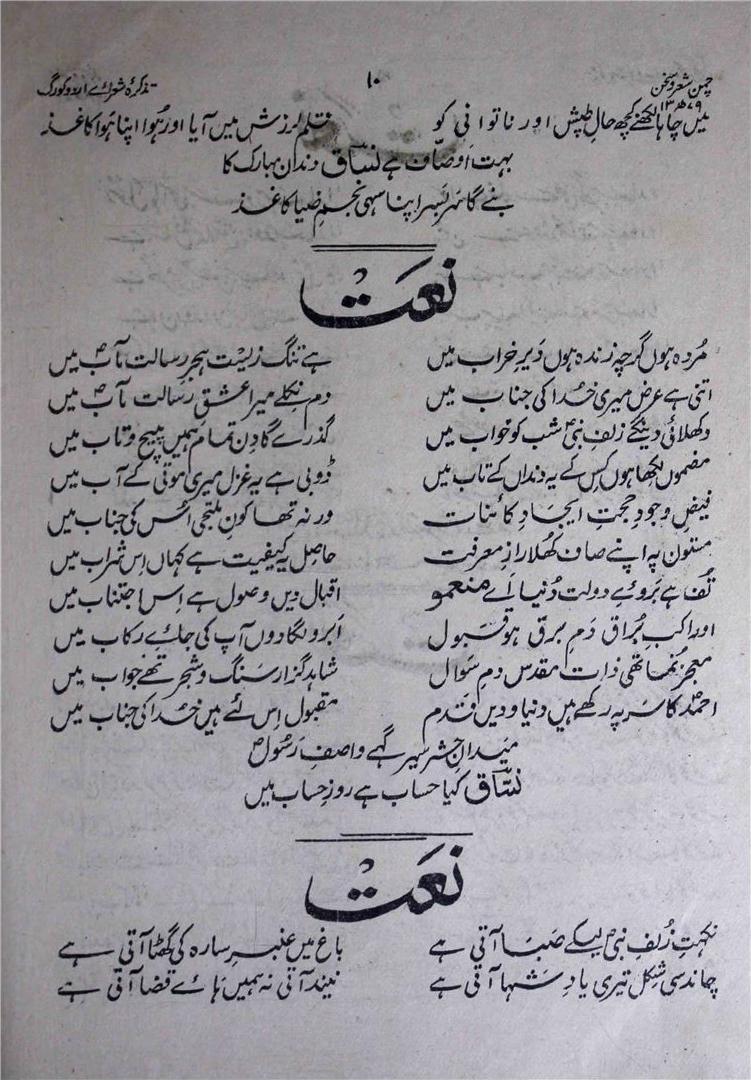 چمن شعر و سخن ۱۰ تذکرۂ شعرائے اردو کورگ
۱۳۷۹ھ
میں چاہا لکھنے کچھ حالِ طپش اور ناتوانی کو قلم لرزش میں آیا اور ہُوا اپنا ہَوا کاغذ
بہت اوصاف ہے نسّاق دندانِ مبارک کا
بنے گا سر بسر اپنا سہی نجمِ ضیا کاغذ
نعت
مُردہ ہوں گرچہ زندہ ہوں دَیرِ خراب میں ہے تنگ زیست ہجرِ رسالت مآبؐ میں
اتنی ہے عرض میری خُدا کی جناب میں دم نکلے میرا عشقِ رسالت مآبؐ میں
دکھلائی دینگے زلفِ نبیؐ شب کو خواب میں گذرے گا دِن تمام ہمیں پیچ و تاب میں
مضموں لکھا ہوں کِس کے یہ دنداں کے تاب میں ڈوبی ہے یہ غزل میری موتی کے آب میں
فیضِ وجودِ حجتِ ایجادِ کائنات ورنہ تھا کون ملتجی اُس کی جناب میں
مستوں پہ اپنے صاف کھُلا رازِ معرفت حاصل یہ کیفیت ہے کہاں اِس شراب میں
تُف ہے بَروئے دولت دُنیا اَے منعمو اقبال دیں وصول ہے اِس اجتناب میں
اور اکبِ بُراق دَمِ برق ہو قبول اَبرو لگا دوں آپ کی جائے رکاب میں
معجز نُما تھی ذات مقدس دمِ سَوال شاہد گزار سَنگ و شجر تھے جواب میں
احمدؐ کا سر پہ رکھے ہیں دنیا و دیں قدم مقبول اِس لئے ہیں خُدا کی جناب میں
میدانِ حشر سیر گہے واصفِ رَسُولؐ
نسّاق کیا حساب ہے روزِ حساب میں
نعت
نکہتِ زُلفِ نبیؐ لیکے صَبا آتی ہے باغ میں عنبرِ سارہ کی گھٹا آتی ہے
چاند سی شکل تیری یاد شہا آتی ہے نیند آتی نہ ہمیں ہائے قضا آتی ہے